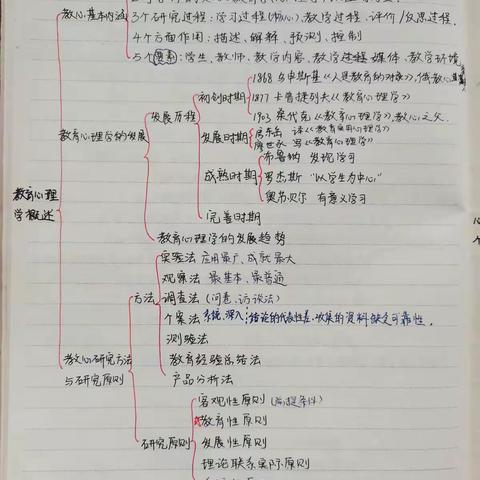 教心基本内涵
3个研究过程:学习过程(核心),教学过程,评价/反思过程.
4个方面作用:描述、解释、预测、控制
5个要素:学生、教师、教学内容、教学过程 媒体、教学环境
1868 乌申斯基《人是教育的对象》,俄教心
初创时期
1877 卡普捷列夫《教育心理学》
1903 桑代克《教育心理学》,教心之父.
发展历程
发展时期
房东岳 译《教育实用心理学》
廖世承 写《教育心理学》
教育心理学的发展
布鲁纳 发现学习
成熟时期
罗杰斯 "以学生为中心"
奥苏贝尔 有意义学习
完善时期
教育心理学的发展趋势
教育心理学概述
实验法 应用最广、成就最大
观察法 最基本、最普遍
方法
调查法(问卷、访谈法)
个案法 系统,深入;结论的代表性差,收集的资料缺乏可靠性.
测验法
教心研究方法与研究原则
教育经验总结法
产品分析法
客观性原则(前提条件)
教育性原则
研究原则
发展性原则
理论联系实际原则